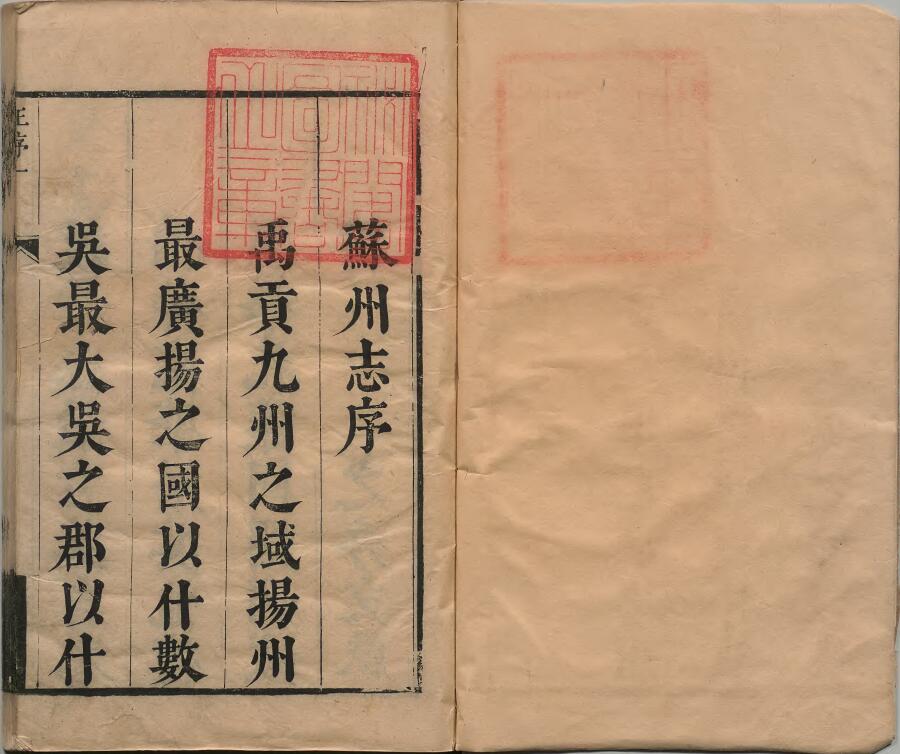 蘇州志序
禹貢九州之域揚州
最廣揚之國以什數
吳最大吳之郡以什
序一